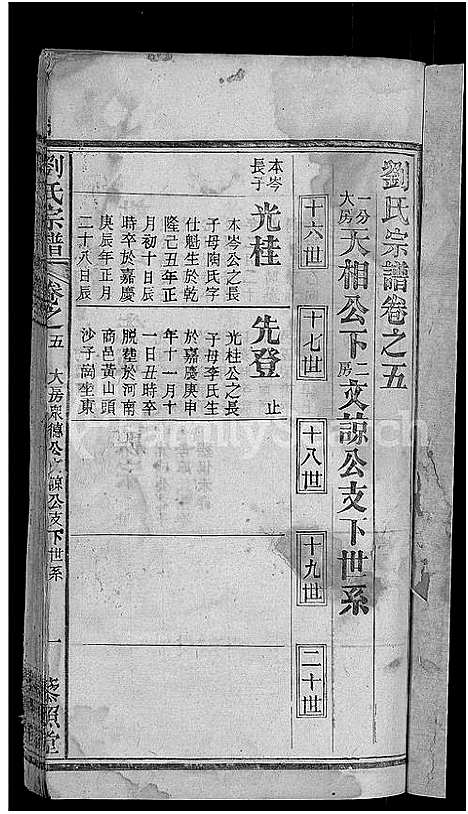 劉氏宗譜卷之五
一分大房大相公下二房文諒公支下世系
十六世
十七世
十八世
十九世
二十世
本岑長子
光桂
本岑公之長
子母陶氏字
仕魁生於乾
隆己丑年正
月初十日辰
時卒於嘉慶
庚辰年正月
二十八日辰
先登
止
光桂公之長
子母李氏生
於嘉慶庚申
年十一月十
一日丑時卒
脱塟於河南
商邑黃山頭
沙子崗坐東
劉氏宗譜
卷之五
大房
德公
諒公支下世系
一
黎照堂
FamilySearch